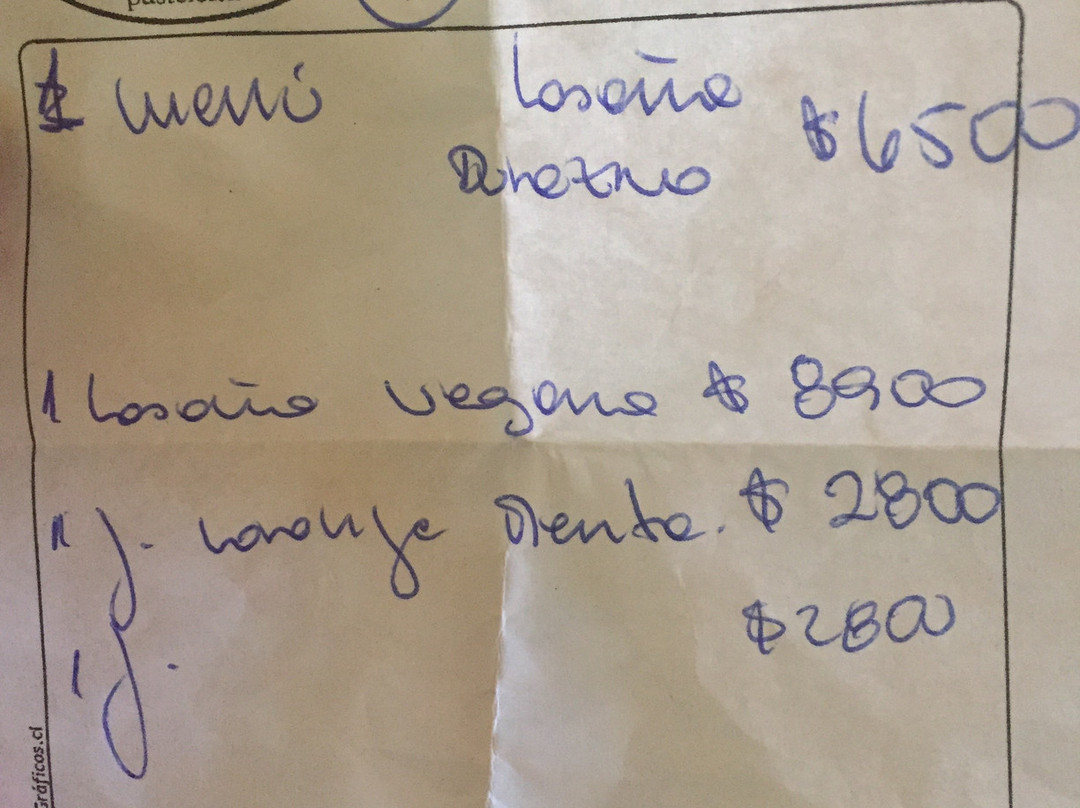 1 menú lasaña $6500
Durazno
1 lasaña vegana $ 8900
1 j. naranja menta. $ 2800
1 j. $2800
Gráficos.cl